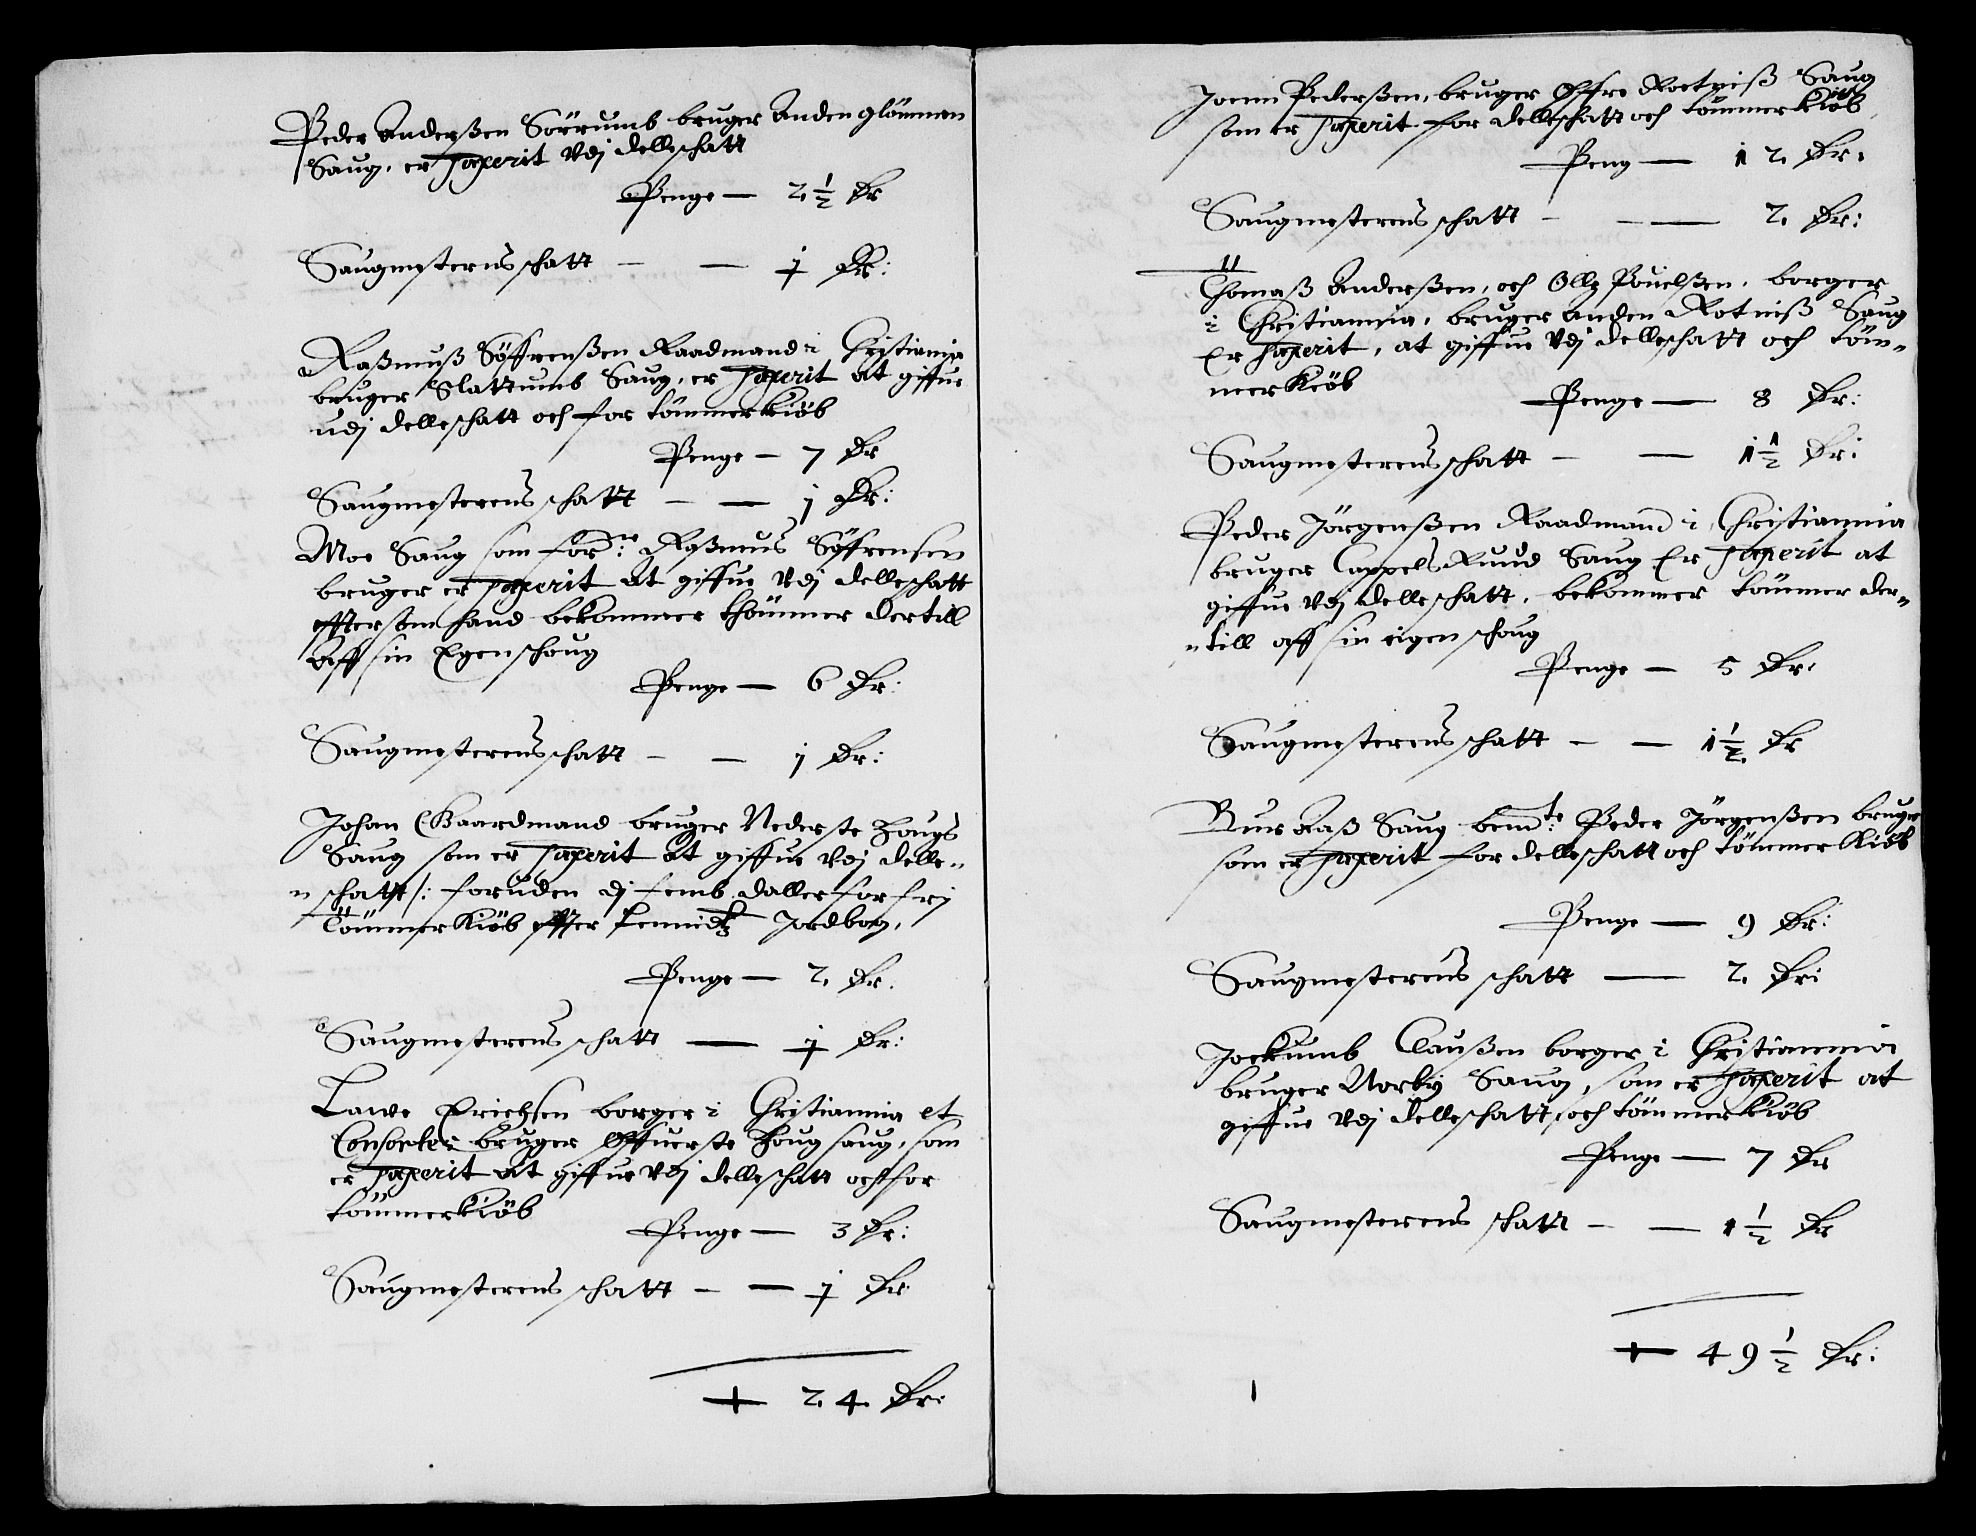 Peder Anderßen Sörrumb bruger Anden glommen
Saug, er Taxerit Vdj delleschatt
Penge — 2½ dr
Saugmesterns schatt — — 1 dr:
Raßmuß Söffrenßen Raadmand i Christiania
bruger Slattumb Saug, er Taxerit at giffue
udj delleschatt och for tömmerkiöb
Penge — 7 dr
Saugmesterens schatt — — j dr:
Moe Saug som forne: Raßmus Söffrensen
bruger er Taxerit at giffue Vdj delleschatt
effter som hand bekommer thömmer dertill
aff sin Egen schoug
Penge — 6 dr:
Saugmesterens schatt — — j dr:
Johan Gaardmand bruger Nederste Houges
Saug som er Taxerit at giffue Vdj delle„
„schatt /: foruden dj femb daller for frj
Tömmerkiöb effter Lennidtz Jordbog,
Penge — 2. dr.
Saugmesterens schatt — 1 dr:
Lawe Erichsen borger i Christiannia et
Consorter bruger Offuerste Houg saug, som
er Taxerit at giffue Vdj delleschatt och for
tömmerkiöb
Penge — 3 dr:
Saugmesterens schatt — — 1 dr
+ 24 dr:
Joenn Pederßen, bruger Öffre Roetniß Saug
som er Taxerit for delleschatt och tömmerkiöb
Peng — 12. dr.
Saugmesterens schatt — — 2. dr:
Thomaß Anderßen, och Olle Pouelßen, borger
i Christiannia, bruger anden Rotniß Saug
Er Taxerit, at giffue Vdj delleschatt och töm„
merkiöb
Penge — 8 dr:
Saugmesterens schatt — — 1½ dr:
Peder Jörgenßen Raadmand i Christiannia
bruger Cappels Ruud Saug Er Taxerit at
giffue Vdj delleschatt, bekommer tömmer der„
„till aff sin eigen schoug
Penge — 5 dr.
Saugmesterens schatt — — 1½ dr
Bur Aaß Saug bemte: Peder Jörgenßen bruger
som er Taxerit for delleschatt och tömmerkiöb
Penge — 9 dr:
Saugmesterens schatt — 2. dr:
Jockumb Claußen borger i Christiannia
bruger Norby Saug, som er Taxerit at
giffue Vdj delleschatt, och tömmerkiöb
Penge — 7 dr
Saugmesterens schatt — — 1½ dr
+ 49½ dr: